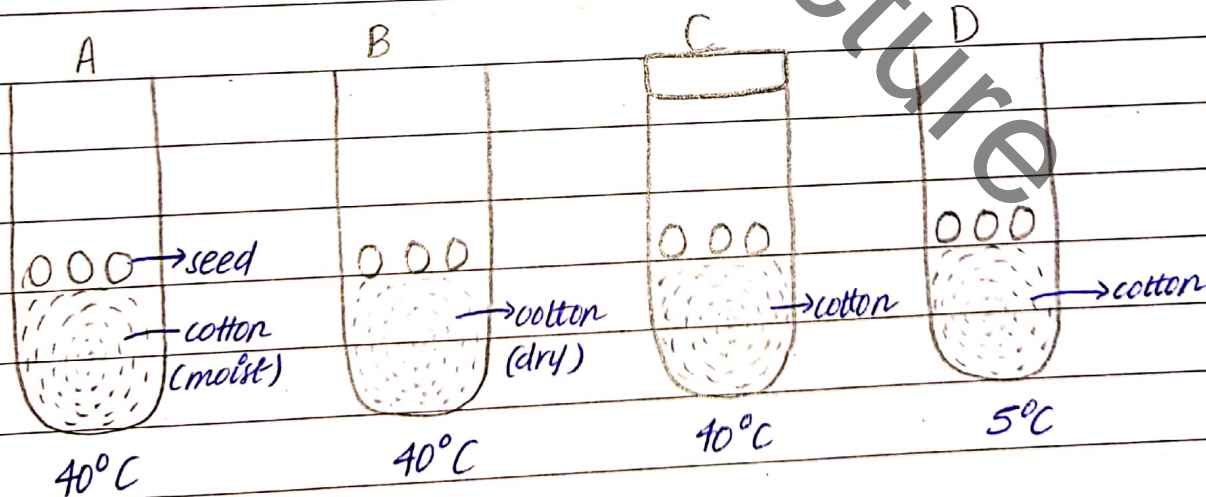 A B C D
cture
seed
cotton
(moist)
cotton
(dry)
cotton
cotton
40°C 40°C 40°C 5°C